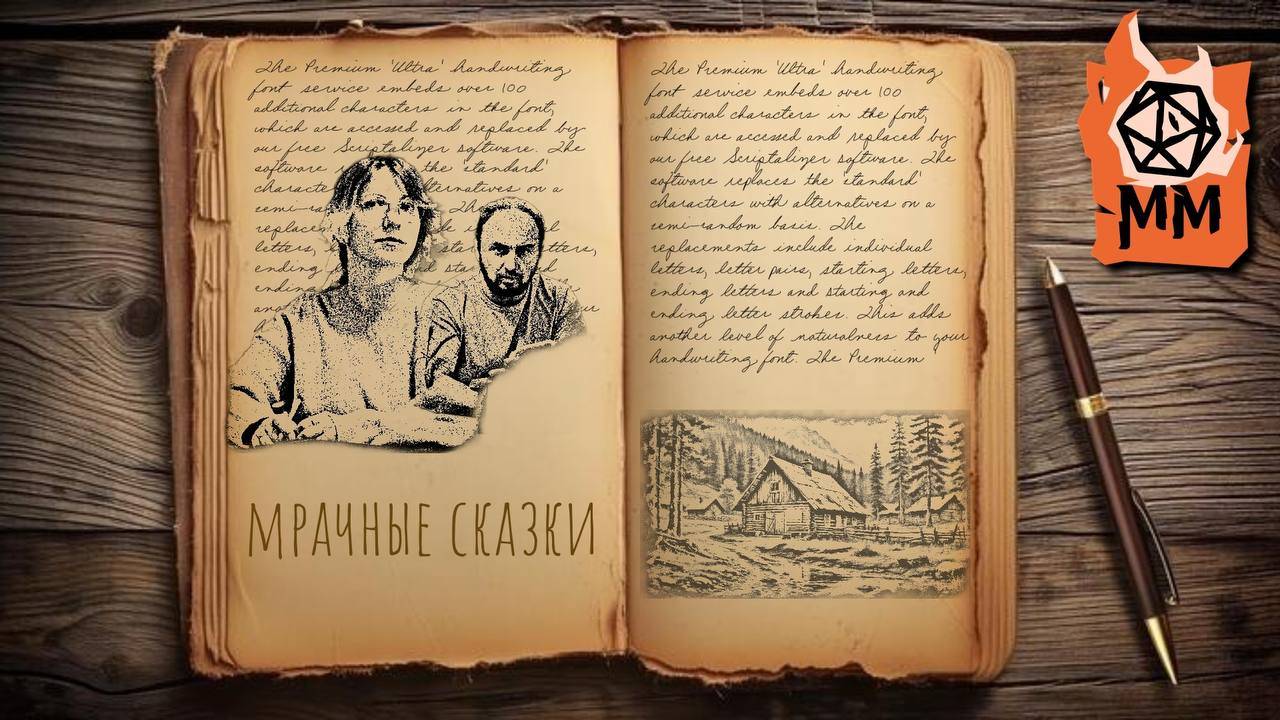 The Premium 'Ultra' handwriting
font service embeds over 100
additional characters in the font,
which are accessed and replaced by
our free Scriptaliner software. The
software the 'standard'
characte alternatives on a
semi-ra Th
replace
letters, star tters,
ending sta d
an ur
МРАЧНЫЕ СКАЗКИ
The Premium 'Ultra' handwriting
font service embeds over 100
additional characters in the font,
which are accessed and replaced by
our free Scriptaliner software. The
software replaces the 'standard'
characters with alternatives on a
semi-random basis. The
replacements include individual
letters, letter pairs, starting letters,
ending letters and starting and
ending letter strokes. This adds
another level of naturalness to your
handwriting font. The Premium
MM